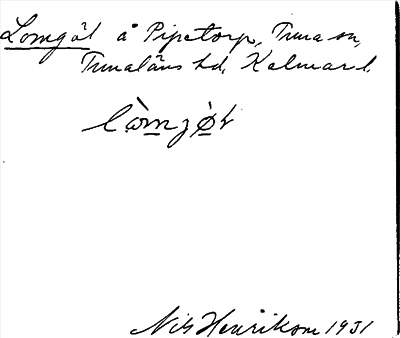 Lomgöl å Pipetorp, Tuna sn,
Tunaläns hd, Kalmar l.
lòmjø̀l
Nils Henrikson 1931